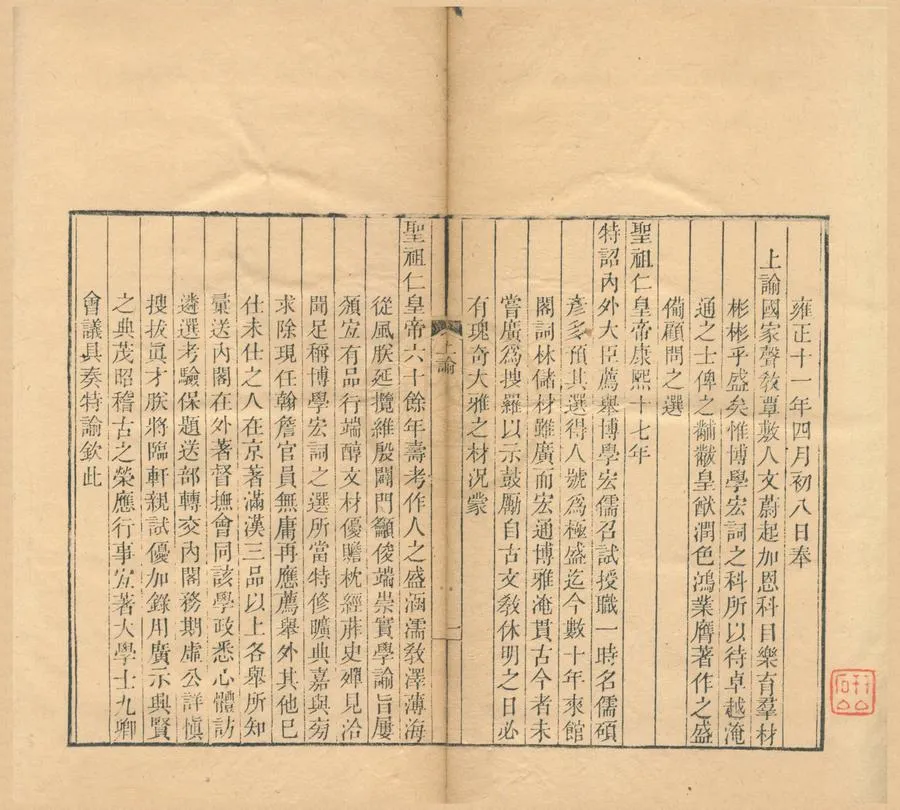 雍正十一年四月初八日奉
上諭國家聲敎覃敷人文蔚起加恩科目樂育羣材
彬彬乎盛矣惟博學宏詞之科所以待卓越淹
通之士俾之黼黻皇猷潤色鴻業膺著作之盛
備顧問之選
聖祖仁皇帝康熙十七年
特詔內外大臣薦舉博學宏儒召試授職一時名儒碩
彥多預其選得人號爲極盛迄今數十年來館
閣詞林儲材雖廣而宏通博雅淹貫古今者未
嘗廣爲搜羅以示鼓勵自古文敎休明之日必
有瑰奇大雅之材況蒙
上諭
一
聖祖仁皇帝六十餘年壽考作人之盛涵濡敎澤薄海
從風朕延攬維殷闢門籲俊端崇實學諭旨屢
頒宣有品行端醇文材優贍枕經葄史殫見洽
聞足稱博學宏詞之選所當特修曠典嘉與旁
求除現任翰詹官員無庸再應薦舉外其他已
仕未仕之人在京著滿漢三品以上各舉所知
彙送內閣在外著督撫會同該學政悉心體訪
遴選考驗保題送部轉交內閣務期虛公詳愼
搜拔眞才朕將臨軒親試優加錄用廣示興賢
之典茂昭稽古之榮應行事宜著大學士九卿
會議具奏特諭欽此